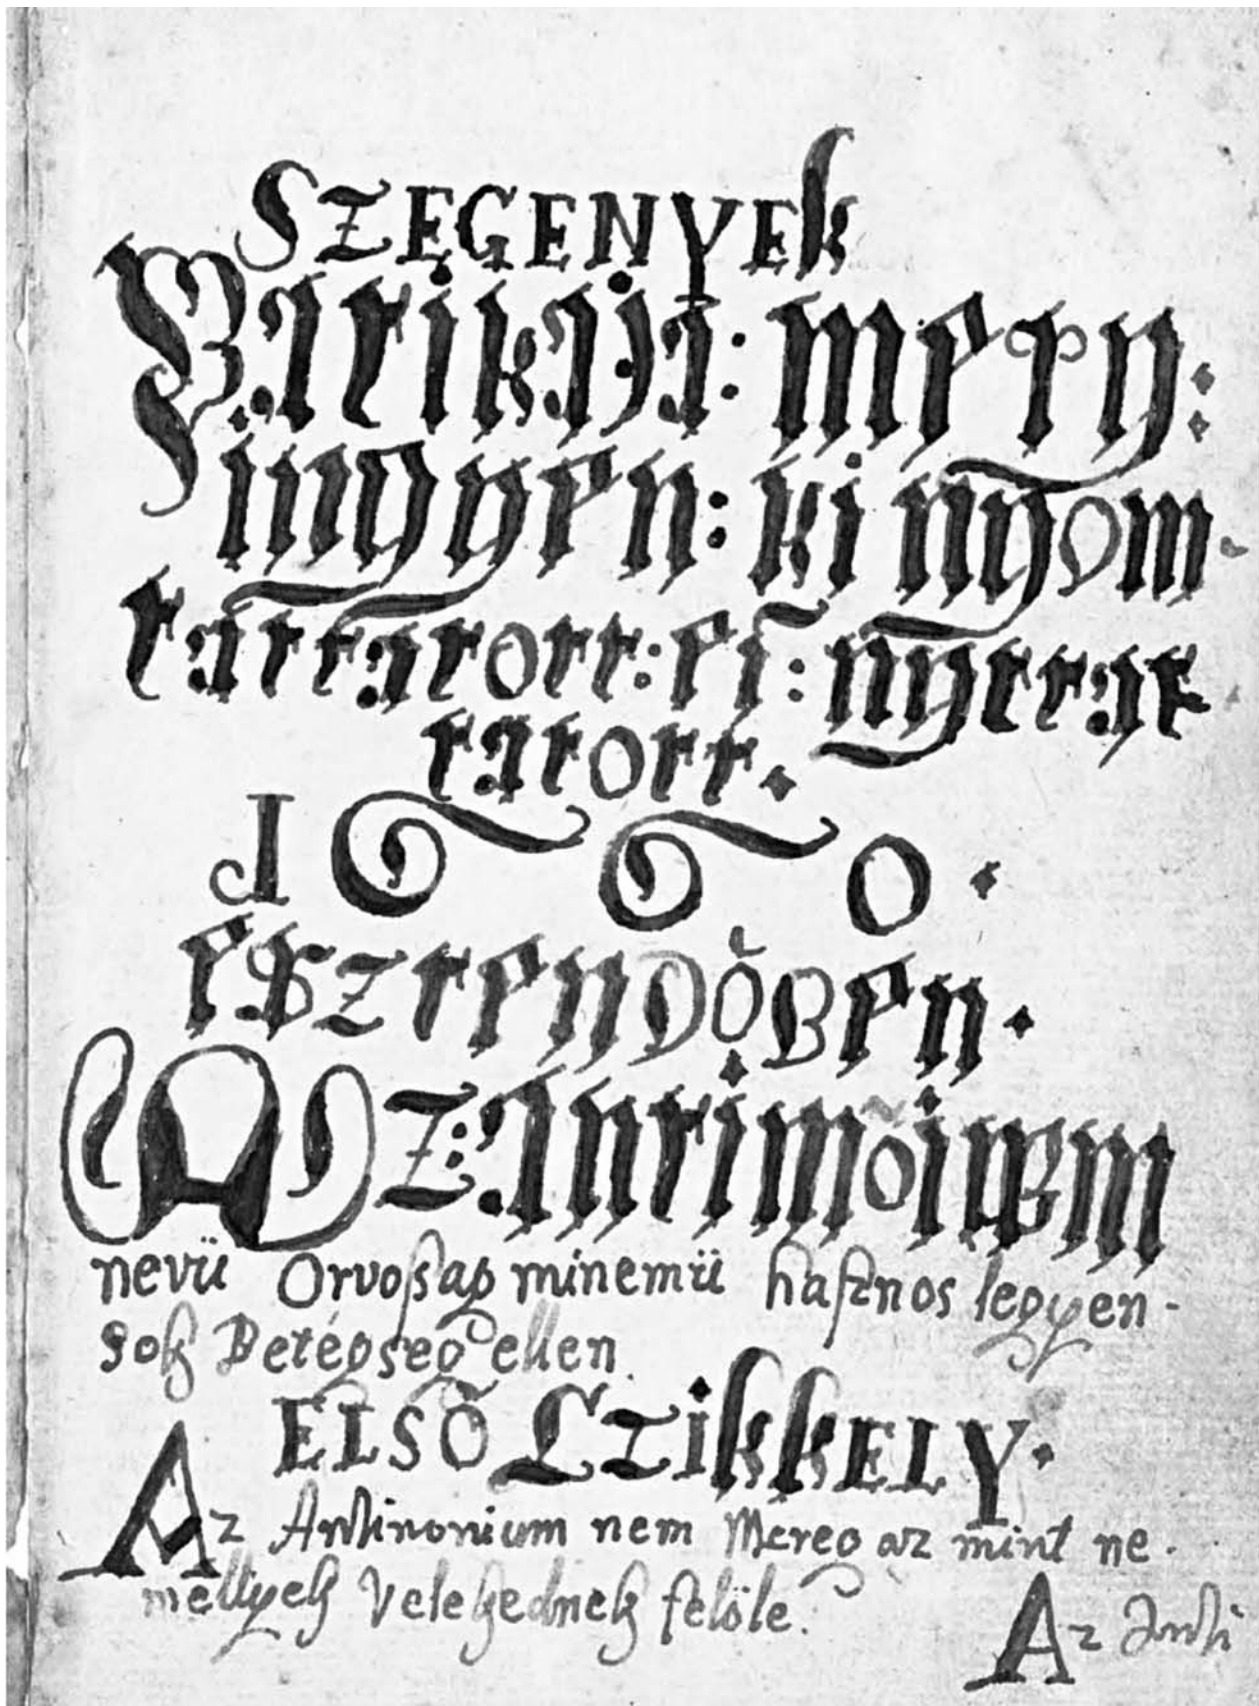 SZEGENYEk
Patikaja: mely:
ingyen: ki nyom-
tattatott: es: nyittat
tatott.
1660.
esztendőben.
Az Antimõium
nevü Orvoßag minemü hasznos legyen-
sok Betégseg ellen
ELSŐ CzikkELY.
Az Antinonium nem Mereg az mint ne-
mellyek Velekednek felöle.
Az Anti